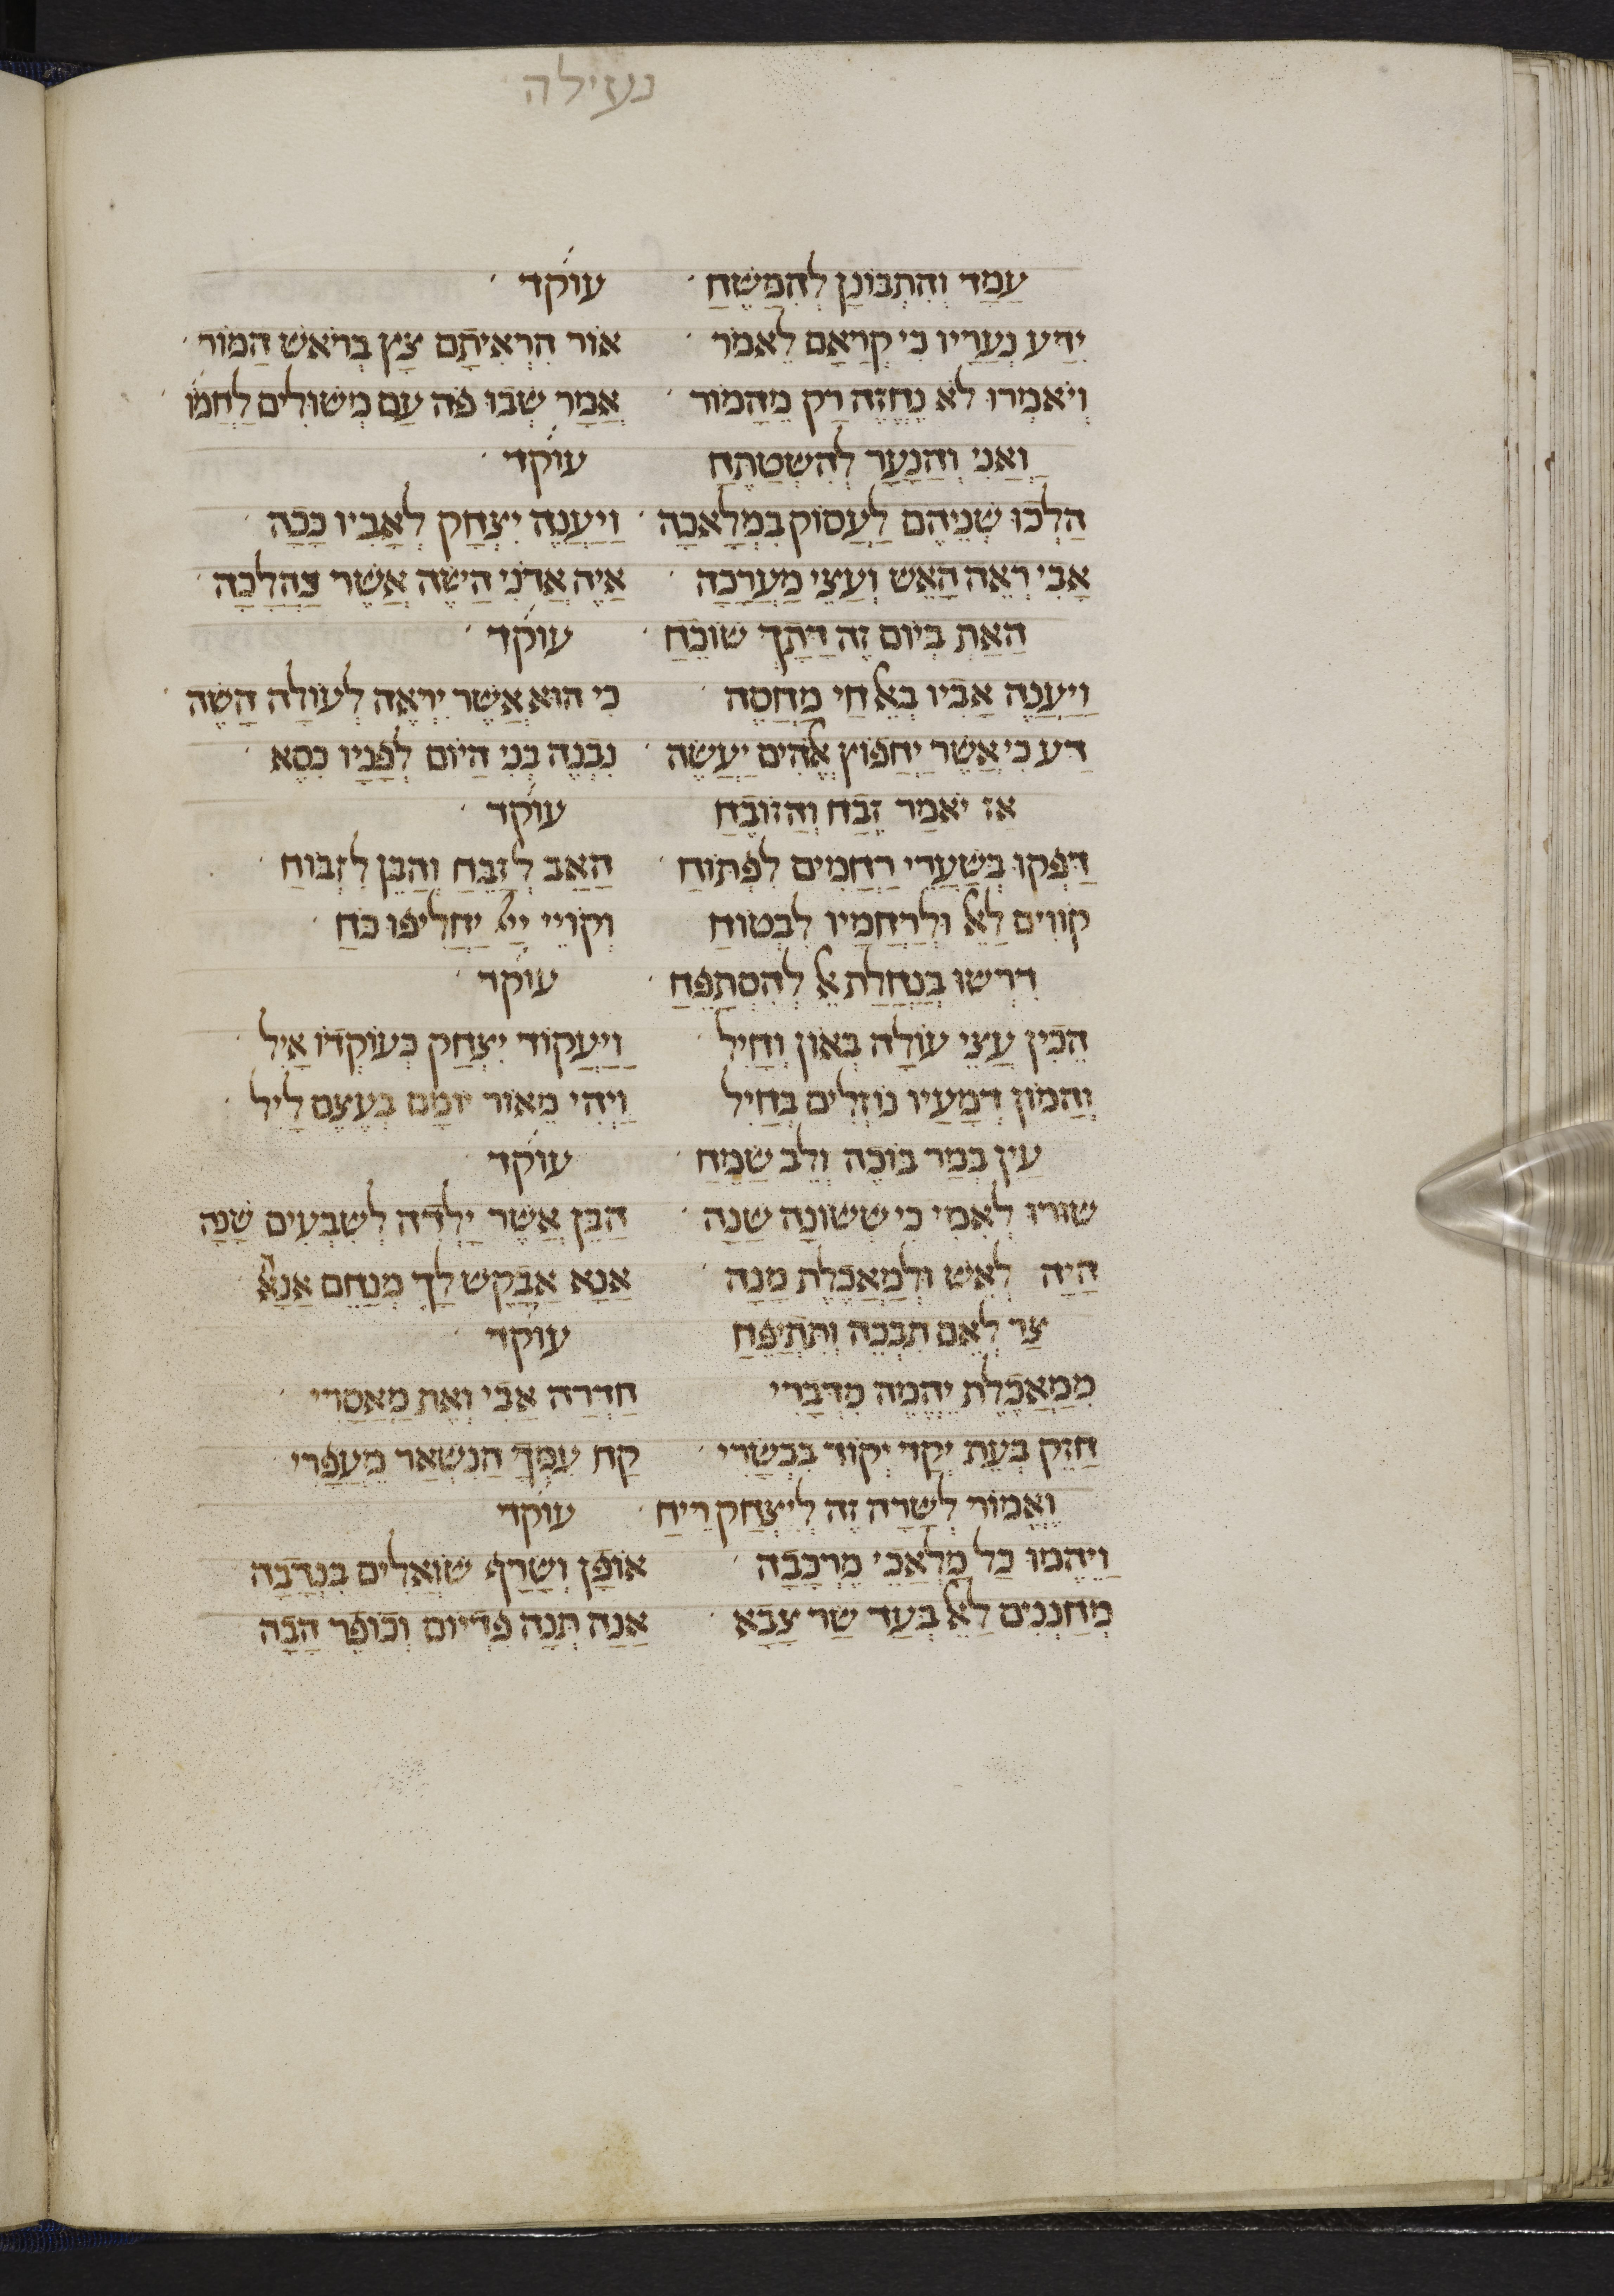 נעילה
עַמַד וְהִתְבּוֹנַן לְהִמַּשֵׁחַ עוֹקֵד
יִדַע נְעָרָיו כִּי קְרָאָם לֵאמֹר אוֹר הִרְאִיתֶם צָץ בְּרֹאשׁ הַמּוֹר
וְיֹאמְרוּ לֹא נֶחֱזֶה רַק מַהֲמוֹר אָמַר שְׁבוּ פֹה עַם מְשׁוּלִים לַחֲמוֹ
וַאֲנִי וְהַנַּעַר לְהִשְׁטַּתֵּחַ עוֹקֵד
הָלְכוּ שְׁנֵיהֶם לַעֲסוֹק בִּמְלָאכָה וַיַּעֲנֶה יִצְחָק לְאָבִיו כָּכָה
אָבִי רְאֵה הָאֵשׁ וְעֲצֵי מַעֲרָכָה אַיֵּה אֲדֹנִי הַשֶּׂה אֲשֶׁר כַּהֲלָכָה
הַאַתְּ בְּיוֹם זֶה דָּתְךָ שׁוֹכֵחַ עוֹקֵד
וַיַּעֲנֶה אָבִיו בְּאֵל חַי מַחְסֶה כִּי הוּא אֲשֶׁר יִרְאֶה לְעוֹלָה הַשֶּׂה
דַּע כִּי אֲשֶׁר יַחְפּוֹץ אֱלֹהִים יַעֲשֶׂה נִבְנֶה בְּנִי הַיּוֹם לְפָנָיו כִּסֵּא
אָז יֹאמַר זֶבַח וְהַזּוֹבֵחַ עוֹקֵד
דָּפְקוּ בְּשַׁעֲרֵי רַחֲמִים לִפְתּוֹחַ הָאָב לְזֶבַח וְהַבֵּן לִזְבּוֹחַ
קֹוִים לָאֵל וּלְרַחֲמָיו לִבְטוֹחַ וְקוֹיֵי יְיָ יַחֲלִיפוּ כֹּחַ
דָּרְשׁוּ בְּנַחֲלַת אֵל לְהִסְתַּפֵּחַ עוֹקֵד
הֵכִין עֲצֵי עוֹלָה בְּאוֹן וְחַיִל וַיַּעֲקוֹד יִצְחָק כְּעוֹקְדוֹ אַיִל
וְהֲמוֹן דְּמָעָיו נוֹזְלִים בְּחַיִל וַיְהִי מְאוֹר יוֹמָם בְּעֶצֶם לַיִל
עַיִן בְּמַר בּוֹכָה וְלֵב שָׂמֵחַ עוֹקֵד
שׂוֹרוּ לְאִמִּי כִּי שְׂשׂוֹנָהּ שָׁנָה הַבֵּן אֲשֶׁר יָלְדָה לְשִׁבְעִים שָׁנָה
הָיָה לְאֵשׁ וּלְמַאֲכֶלֶת מָנָה אָנָא אֲבַקֵּשׁ לָךְ מְנַחֵם אָנָא
צַר לְאֵם תִּבְכֶּה וְתִתְיַפֵּחַ עוֹקֵד
מִמַּאֲכֶלֶת יֶהֱמֶה מִדְבָּרִי חַדְּדָה אָבִי וְאֶת מַאֲסָרִי
חַזֵּק בְּעֵת יְקַד יְקוֹד בִּבְשָׂרִי קַח עִמְּךָ הַנִּשְׁאָר מֵעֲפָרִי
וֶאֱמוֹר לְשָׂרָה זֶה לְיִצְחָק רֵיחַ עוֹקֵד
וַיֶּהֱמוּ כָּל מַלְאֲכֵי מֶרְכָּבָה אוֹפָן וְשָׂרָף שׁוֹאֲלִים בִּנְדָבָה
מְחַנְּנִים לָאֵל בְּעַד שַׂר צָבָא אָנָה תְּנָה פִּדְיוֹם וְכוֹפֶר הָבָה